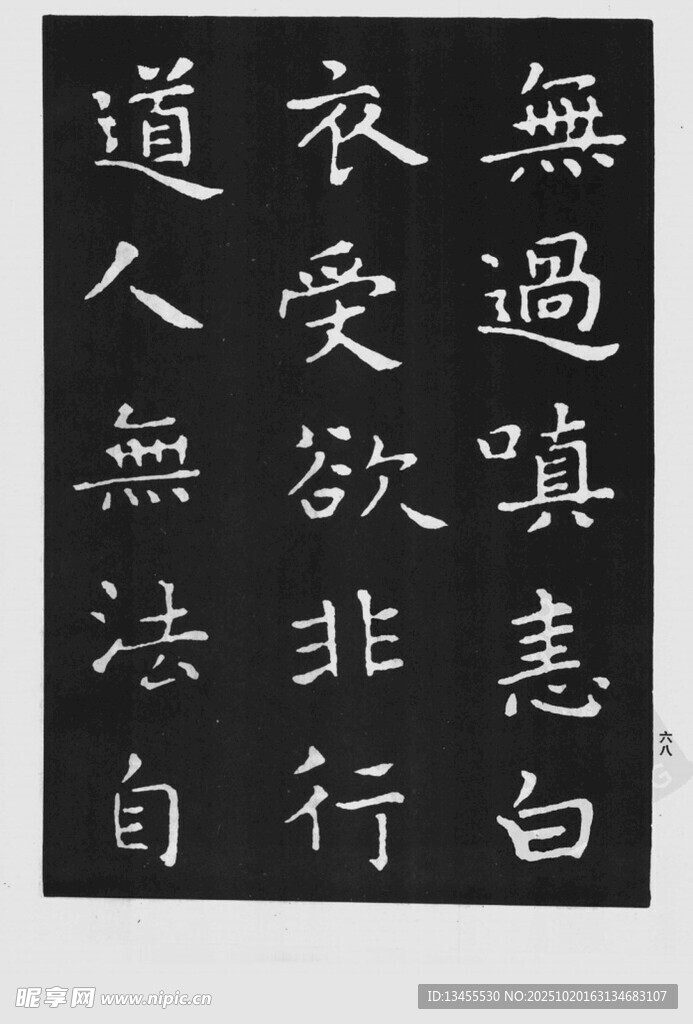 無過嗔恚白
衣受欲非行
道人無法自
六八
昵享网 www.nipic.cn
ID:13455530 NO:20251020163134683107